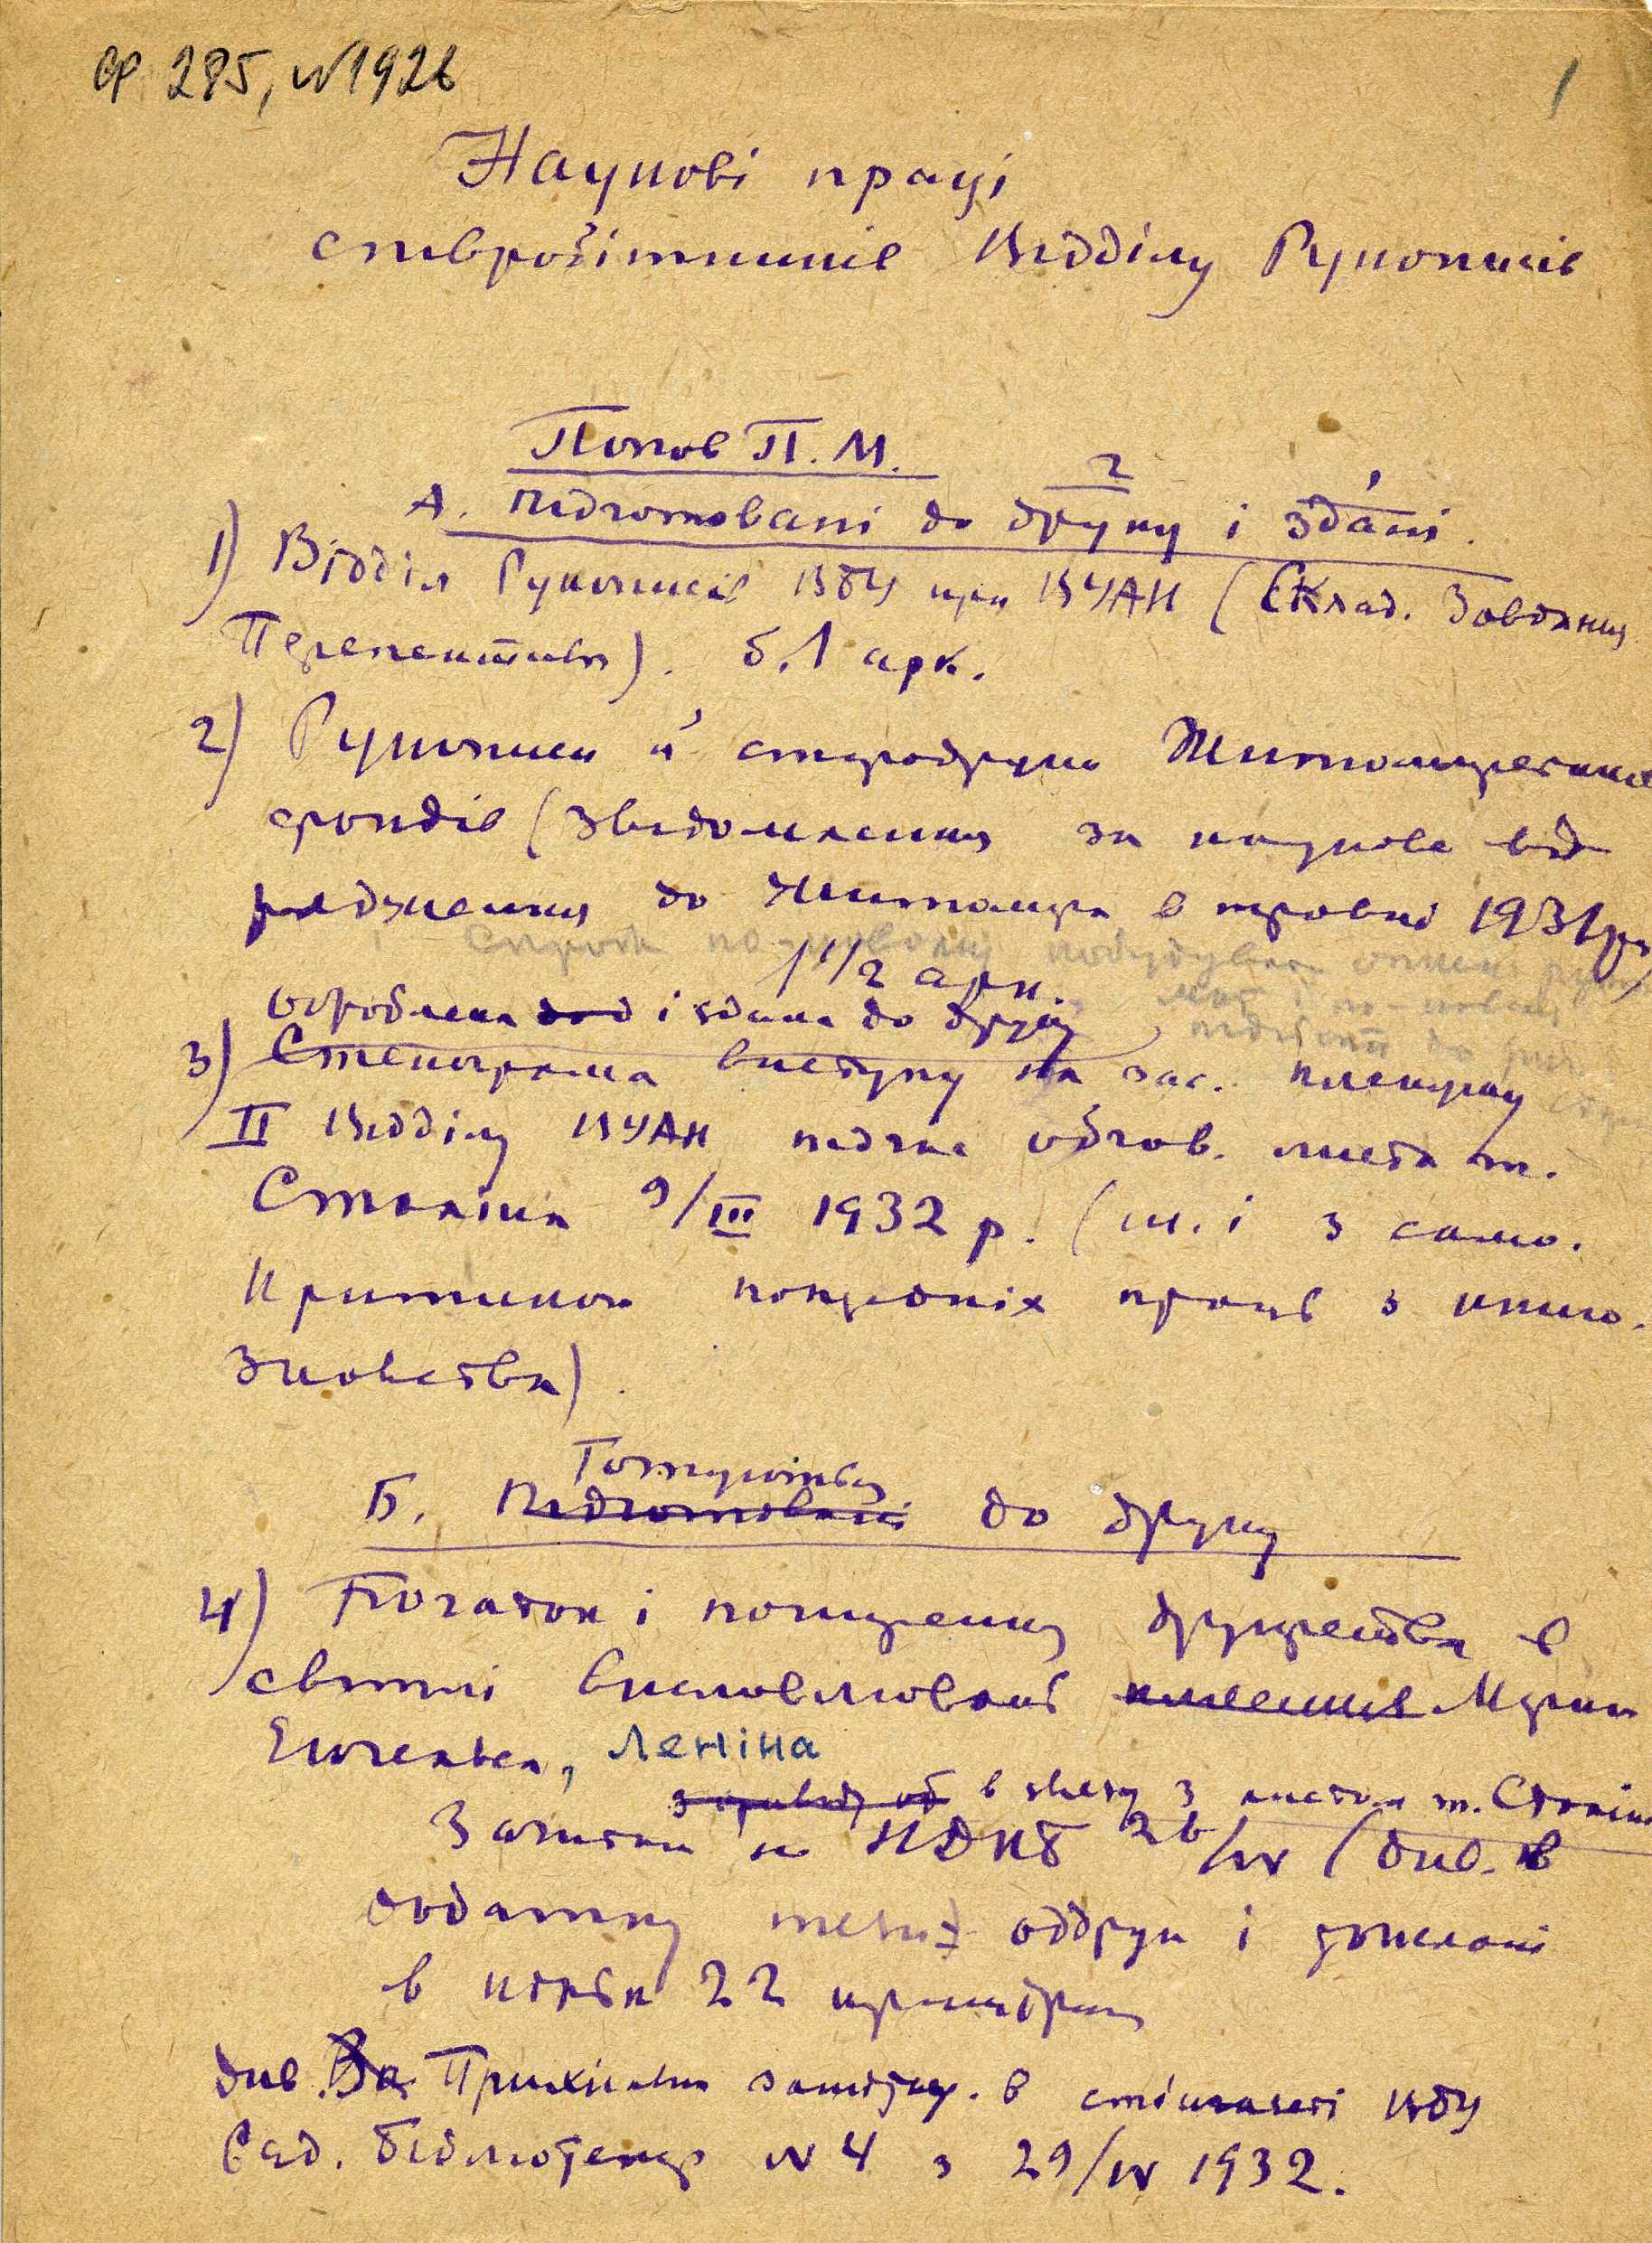 ф 285, №1926
1
Наукові праці
співробітників Відділу Рукописів
Попов П. М.
А. Підготовані до друку і здані.
1) Відділ Рукописів ВБУ при ВУАН (Склад. Завдання
Перспективи). б. 1 арк.
2) Рукописи й стародруки Житомирських
фондів (Звідомлення за наукове від
рядження до Житомира в травні 1931 р.
1 1/2 арк.
оброблена і здана до друку
3) Стенограма виступу на зас. пленуму
II Відділу ВУАН підчас обгов. листа т.
Сталіна 9/III 1932 р. (т. і з само.
критикою попередніх праць з книго.
знавства).
Готуються
Б. Підготовані до друку
4) Початок і поширення друкарства в
світлі висловлювань Маркса
Енгельса, Леніна
в звязку з листом т. Сталіна
Записки НДКБ 26/IV (див. в
додатку тези оддрук і
в кільк 22 примірн
див. Прихильн в стінгазеті ВБУ
Рад. Бібліотекар №4 з 29/IV 1932.